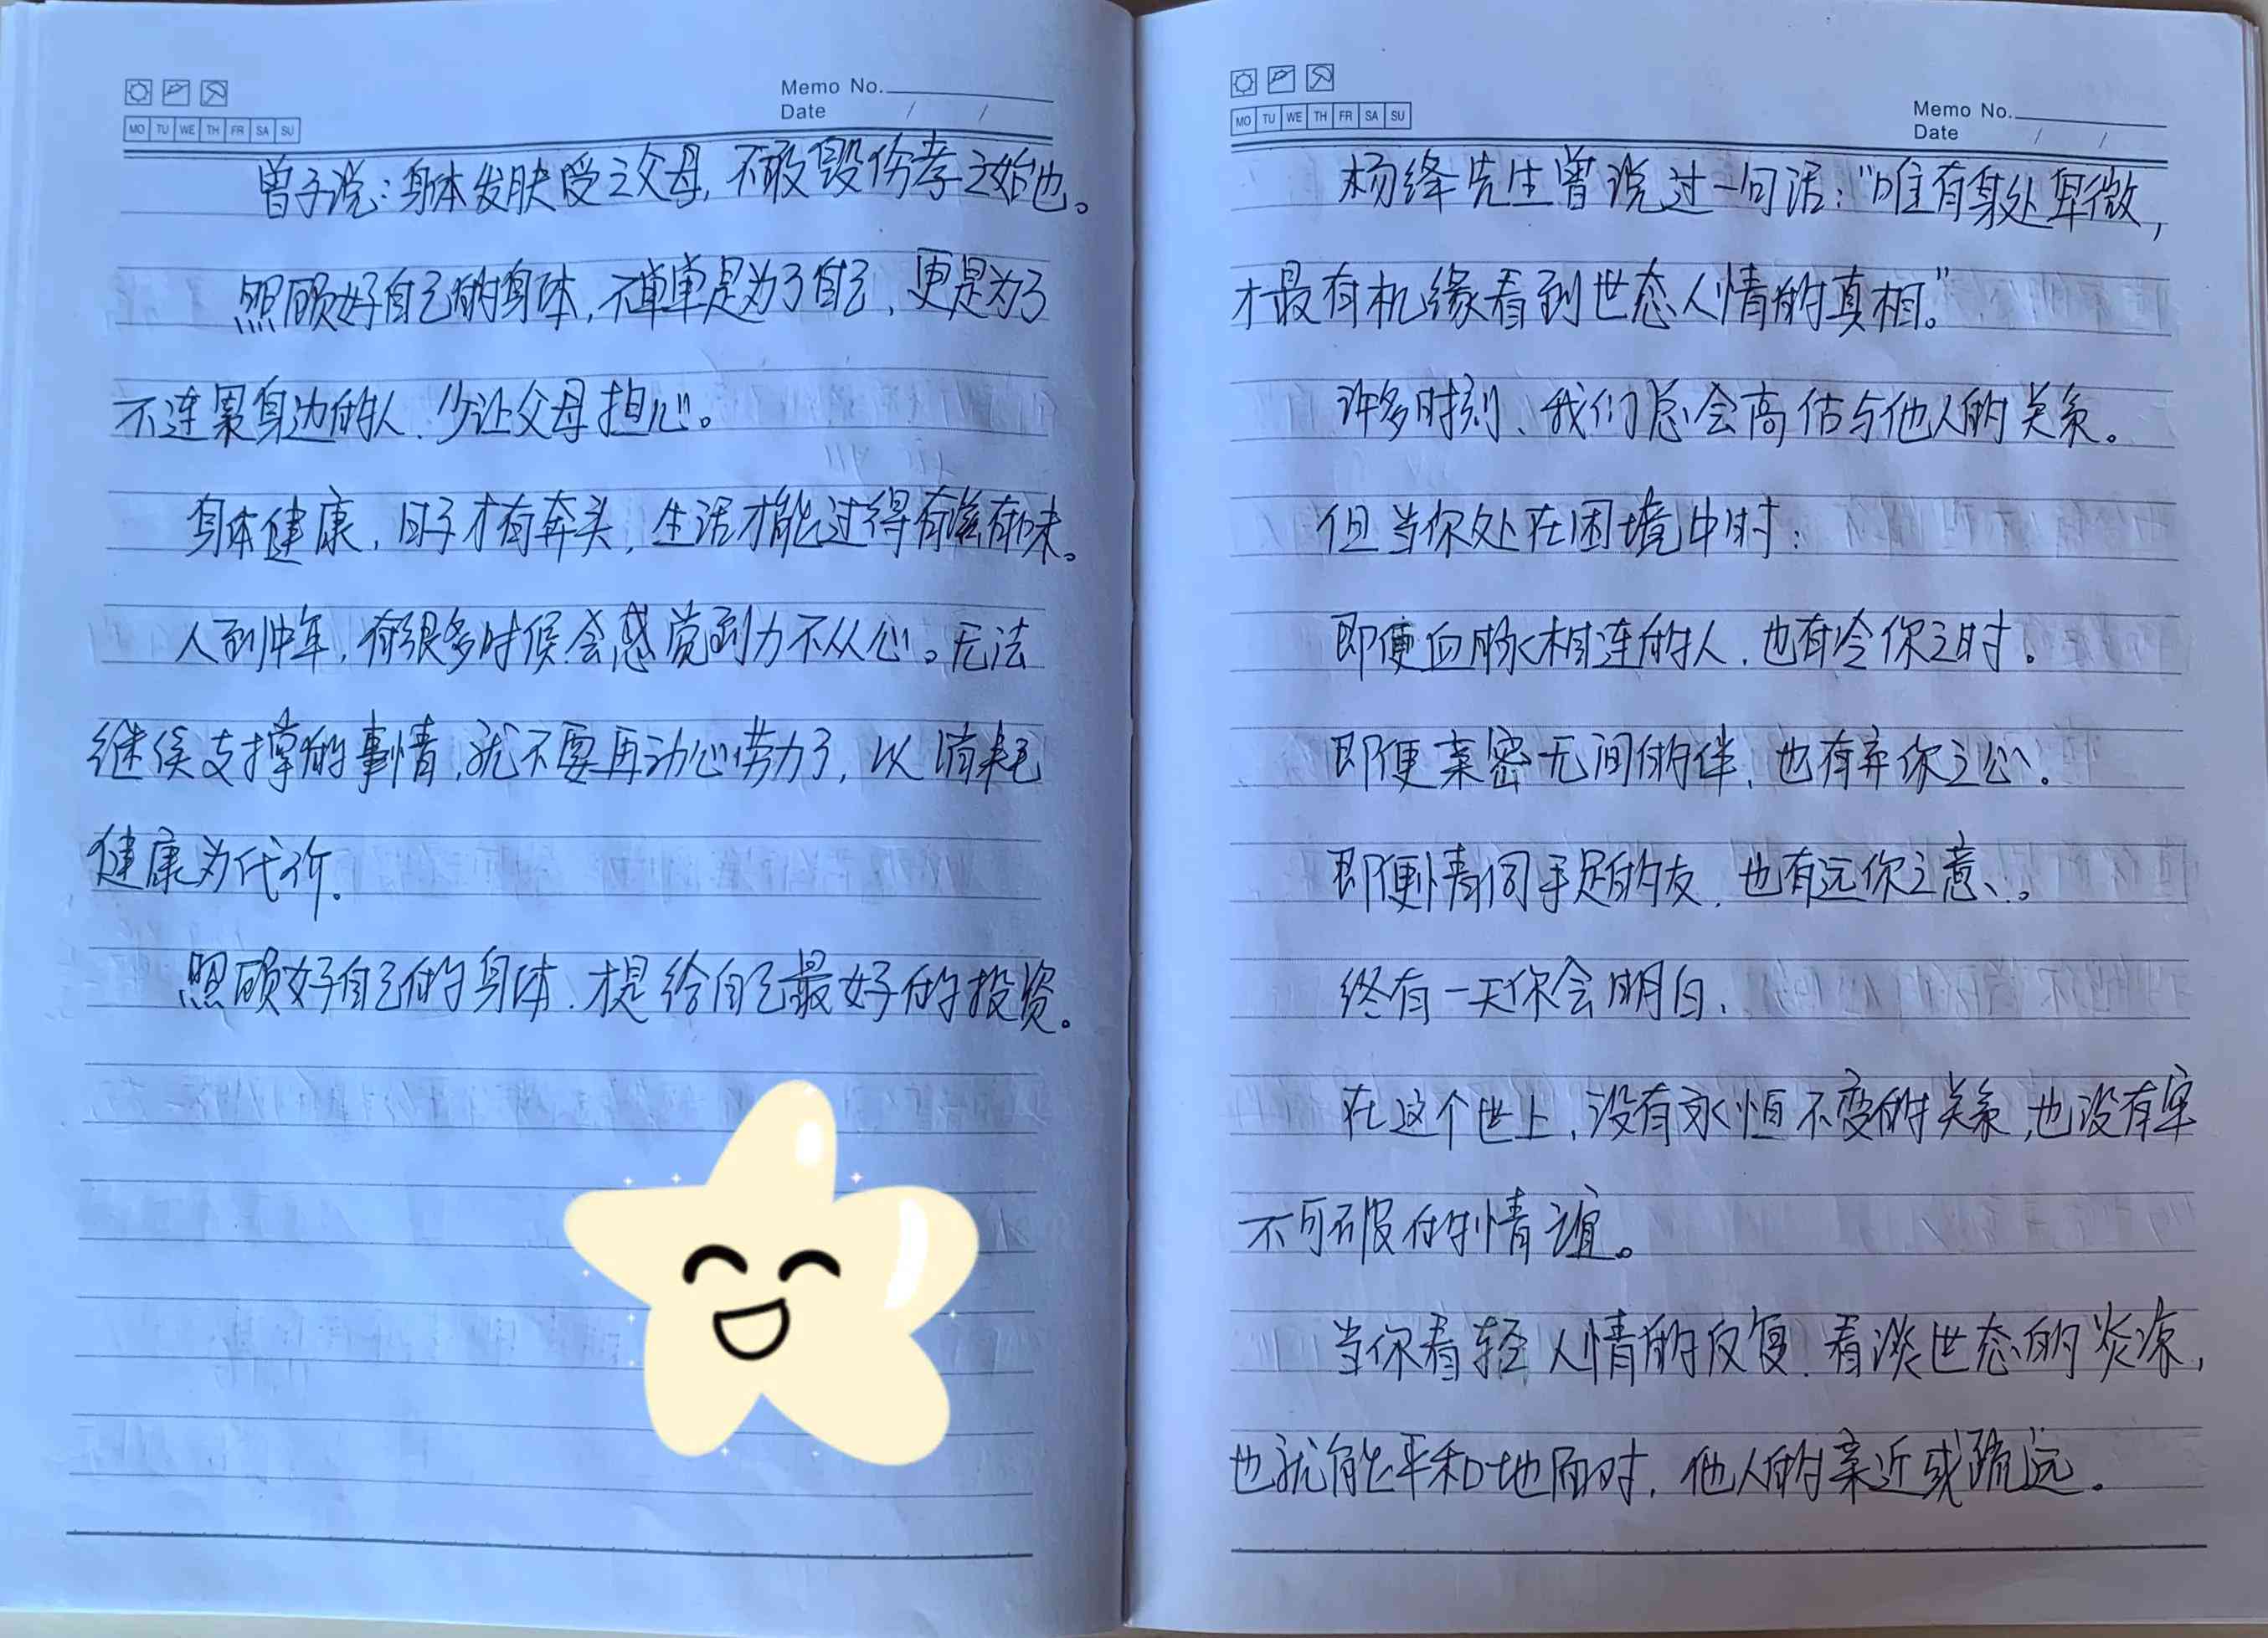 Memo No.
Date / /
MO TU WE TH FR SA SU
曾子说：身体发肤受之父母，不敢毁伤孝之始也。
照顾好自己的身体，不单单是为了自己，更是为了
不连累身边的人、少让父母担心。
身体健康，日子才有奔头，生活才能过得有滋有味。
人到中年，有很多时候会感觉到力不从心。无法
继续支撑的事情，就不要再动心劳力了，以消耗
健康为代价。
照顾好自己的身体，才是给自己最好的投资。
Memo No.
Date / /
MO TU WE TH FR SA SU
杨绛先生曾说过一句话：“唯有身处卑微，
才最有机缘看到世态人情的真相。”
许多时刻、我们总会高估与他人的关系。
但当你处在困境中时：
即便血脉相连的人，也有冷你之时。
即便亲密无间的伴，也有弃你之心。
即便情同手足的友，也有远你之意。
终有一天你会明白，
在这个世上，没有永恒不变的关系，也没有牢
不可破的情谊。
当你看轻人情的反复，看淡世态的炎凉，
也就能平和地面对，他人的亲近或疏远。